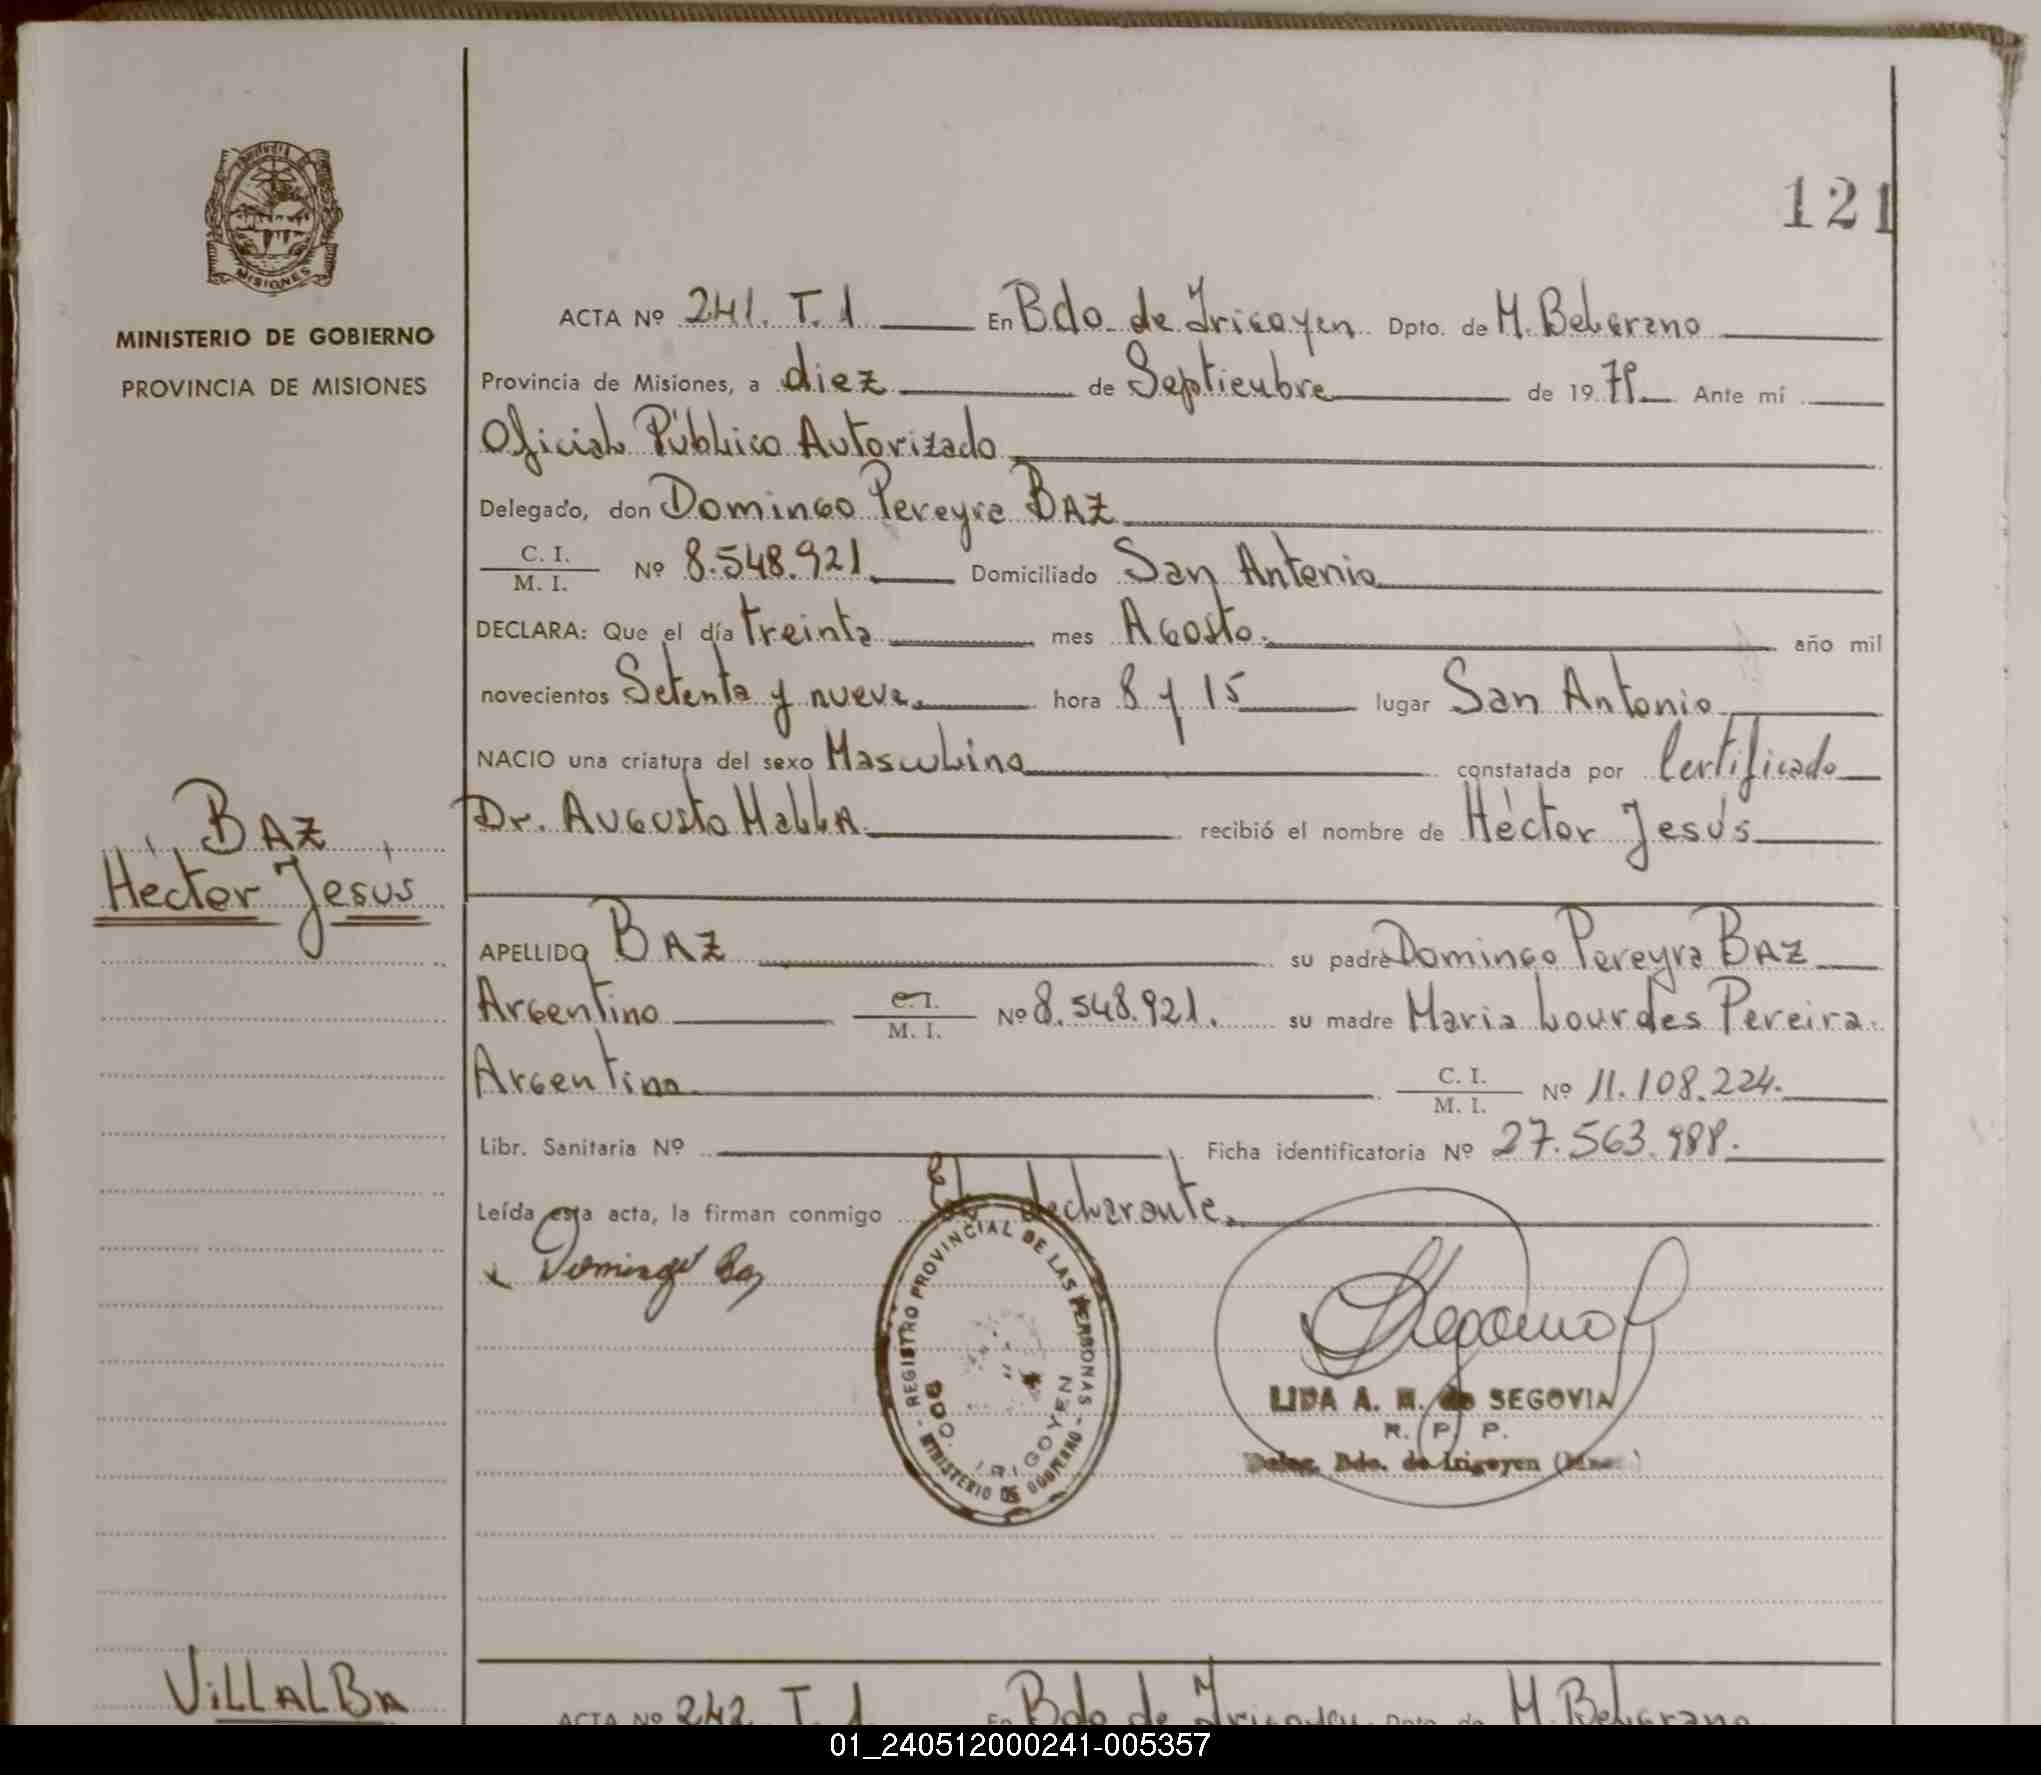 121
MISIONES
MINISTERIO DE GOBIERNO
PROVINCIA DE MISIONES
ACTA Nº 241. T. 1 En Bdo. de Irigoyen Dpto. de M. Belgrano
Provincia de Misiones, a diez de Septiembre de 1979 Ante mí
Oficial Público Autorizado
Delegado, don Domingo Pereyra BAZ
C. I. / M. I. Nº 8.548.921 Domiciliado San Antonio
DECLARA: Que el día treinta mes Agosto. año mil
novecientos Setenta y nueve hora 8 y 15 lugar San Antonio
NACIO una criatura del sexo Masculino constatada por Certificado
Dr. Augusto recibió el nombre de Héctor Jesús
BAZ
Hector Jesús
APELLIDO BAZ su padre Domingo Pereyra BAZ
Argentino C. I. / M. I. Nº 8.548.921. su madre Maria Lourdes Pereira
Argentina C. I. / M. I. Nº 11.108.224.
Libr. Sanitaria Nº Ficha identificatoria Nº 27.563.988.
Leída esta acta, la firman conmigo El declarante.
Domingo Baz
REGISTRO PROVINCIAL DE LAS PERSONAS - MINISTERIO DE GOBIERNO -
BDO. IRIGOYEN
LIDA A. M. de SEGOVIA
R. P. P.
Deleg. Bdo. de Irigoyen (Mnes.)
VILLALBA
ACTA Nº 242 T. 1 En Bdo de Irigoyen Dpto. de M. Belgrano
01_240512000241-005357